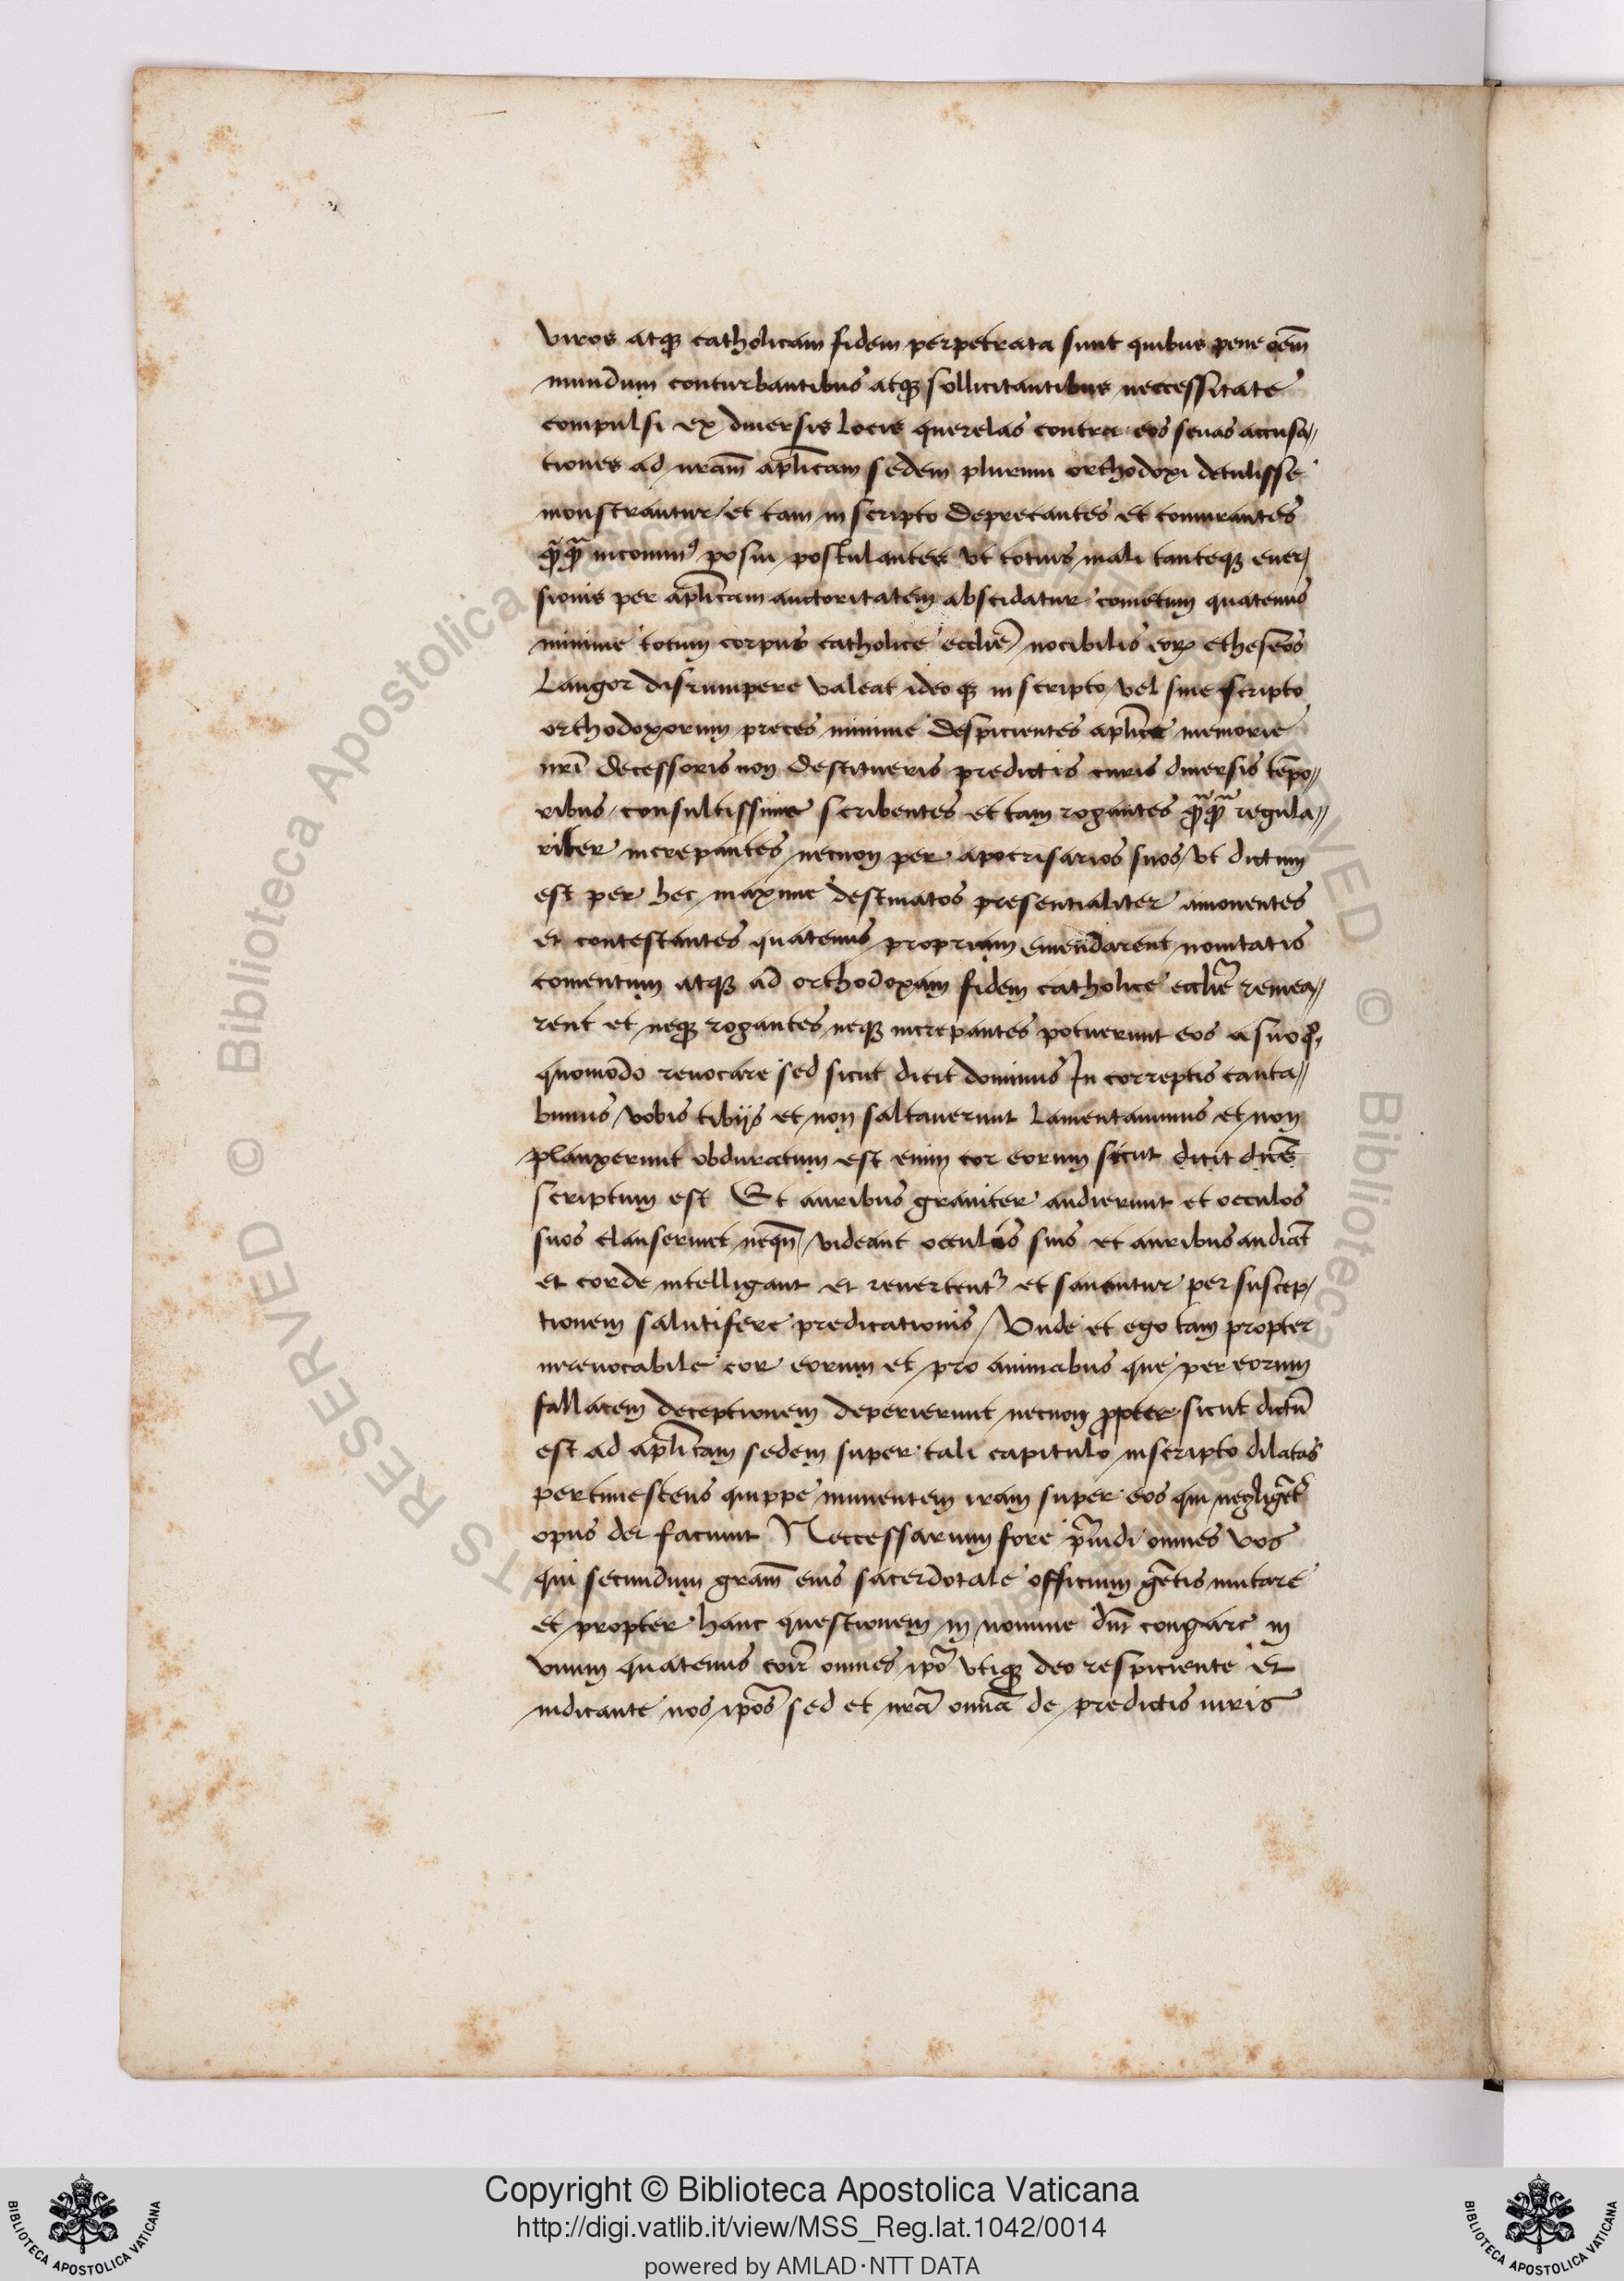 viros atqꝫ catholicam fidem perpetrata sunt quibus pene oēm
mundum conturbantibus atqꝫ sollicitantibus neccessitate
compulsi ex diuersis locis querelas contra eos seuas accusa//
tiones ad nrām aplicam sedem plurimi orthodoxi detulisse
monstrantur / et tam in scripto deprecantes et coniurantes
posui postulantes vt totius mali tanteqꝫ euer/
sionis per aplicam auctoritatem abscidatur cometum quatenus
minime totum corpus catholice ecclīe nocibilis eoꝝ etheseos
Langor disrumpere valeat ideoqꝫ in scripto vel sine scripto
orthodoxorum preces minime despicientes aplice memorie
nrī decessoris non destitueris predictis curis diuersis tēpo//
ribus / consultissime scribentes et tam rogantes regula//
riter increpantes necnon per apocrisarios suos / vt dictum
est per hec maxime destinatos presentialiter āmonentes
et contestantes quatenus propriam emendarent nouitatis
comentum atqꝫ ad orthodoxam fidem catholice ecclīe remea//
rent et neqꝫ rogantes neqꝫ increpantes potuerunt eos a suo
quomodo reuocare sed sicut dicit dominus In correptis canta//
bimus / vobis tibijs et non saltauerunt Lamentauimus et non
planxerunt obduratum est enim cor eorum sicut dicit
scriptum est Et auribus grauiter audierunt et occulos
suos clauserunt neqn̄ / videant occulis suis et auribus audiāt
et corde intelligant et reuertent᷑ et sanentur per suscep/
tionem salutifere predicationis / Vnde et ego tam propter
irreuocabile cor eorum et pro animabus que per eorum
fallacem deceptionem deperierunt necnon propter sicut dictū
est ad aplicam sedem super tali capitulo in scripto dilatas
pertimescens quippe iminentem iram super eos qui negligēt᷑
opus dei faciunt Neccessarium fore p̄uidi omnes vos
qui secundum grām eius sacerdotale officium gētis mutare
et propter hanc questionem in nomine dn̄i congare in
vnum quatenus omnes ipō vtiqꝫ deo respiciente et
iudicante nos ipōs sed et nrā omīa de predictis iuris
Copyright © Biblioteca Apostolica Vaticana
http://digi.vatlib.it/view/MSS_Reg.lat.1042/0014
powered by AMLAD·NTT DATA
BIBLIOTECA APOSTOLICA VATICANA
BIBLIOTECA APOSTOLICA VATICANA